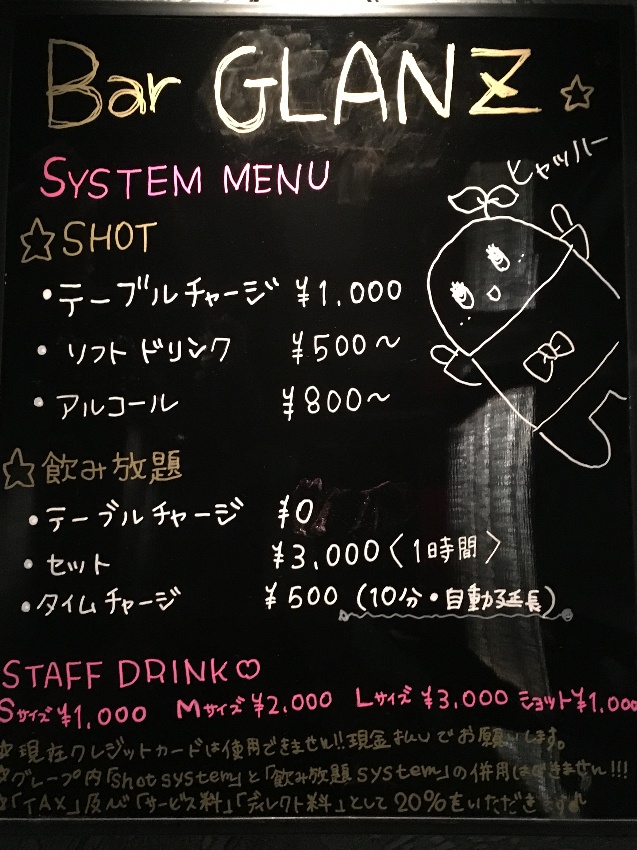 Bar GLANZ ☆
ヒャッハー
SYSTEM MENU
☆SHOT
・テーブルチャージ ¥1,000
・ソフトドリンク ¥500〜
・アルコール ¥800〜
☆飲み放題
・テーブルチャージ ¥0
・セット ¥3,000〈1時間〉
・タイムチャージ ¥500 (10分・自動延長)
STAFF DRINK♡
Sサイズ¥1,000 Mサイズ¥2,000 Lサイズ¥3,000 ショット¥1,000
☆現在クレジットカードは使用できません!!現金払いでお願いします。
☆グループ内「shot system」と「飲み放題 system」の併用はできません!!!
☆「TAX」及び「サービス料」「ディレクト料」として20%をいただきます